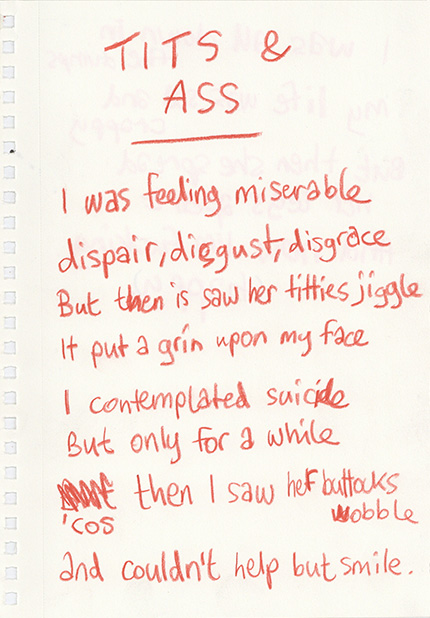 TITS &
ASS
I was feeling miserable
dispair, disgust, disgrace
But then is saw her titties jiggle
It put a grin upon my face
I contemplated suicide
But only for a while
'cos then I saw her buttocks
wobble
and couldn't help but smile.